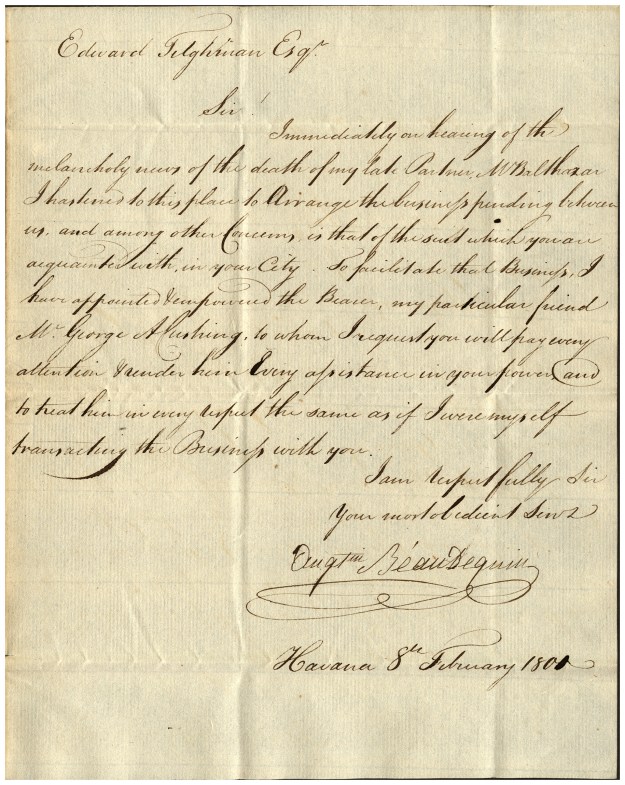 Edward Tilghman Esqr.
Sir!
Immediately on hearing of the
melancholy news of the death of my late Partner, Mr Balthazar
I hastened to this place to Arrange the business pending between
us, and among other Concerns, is that of the suit which you are
acquainted with, in your City. To facilitate that Business, I
have appointed & empowered the Bearer, my particular friend
Mr. George A Cushing, to whom I request you will pay every
attention & render him Every assistance in your power, and
to treat him in every respect the same as if I were myself
transacting the Business with you.
I am respectfully Sir
Your most obedient Servt
Augtin Béaudequin
Havana 8th February 1801